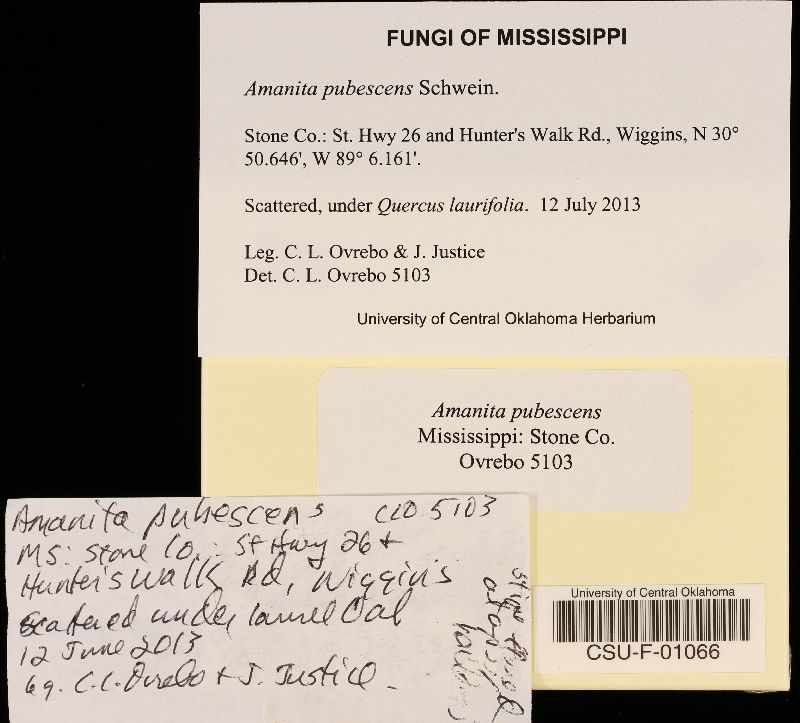 FUNGI OF MISSISSIPPI
Amanita pubescens Schwein.
Stone Co.: St. Hwy 26 and Hunter's Walk Rd., Wiggins, N 30°
50.646', W 89° 6.161'.
Scattered, under Quercus laurifolia. 12 July 2013
Leg. C. L. Ovrebo & J. Justice
Det. C. L. Ovrebo 5103
University of Central Oklahoma Herbarium
Amanita pubescens
Mississippi: Stone Co.
Ovrebo 5103
Amanita pubescens CLO 5103
MS: Stone Co.: St Hwy 26 +
Hunter's Walk Rd, Wiggins
Scattered under laurel Oak
12 June 2013
leg. C.L. Ovrebo + J. Justice
University of Central Oklahoma
CSU-F-01066